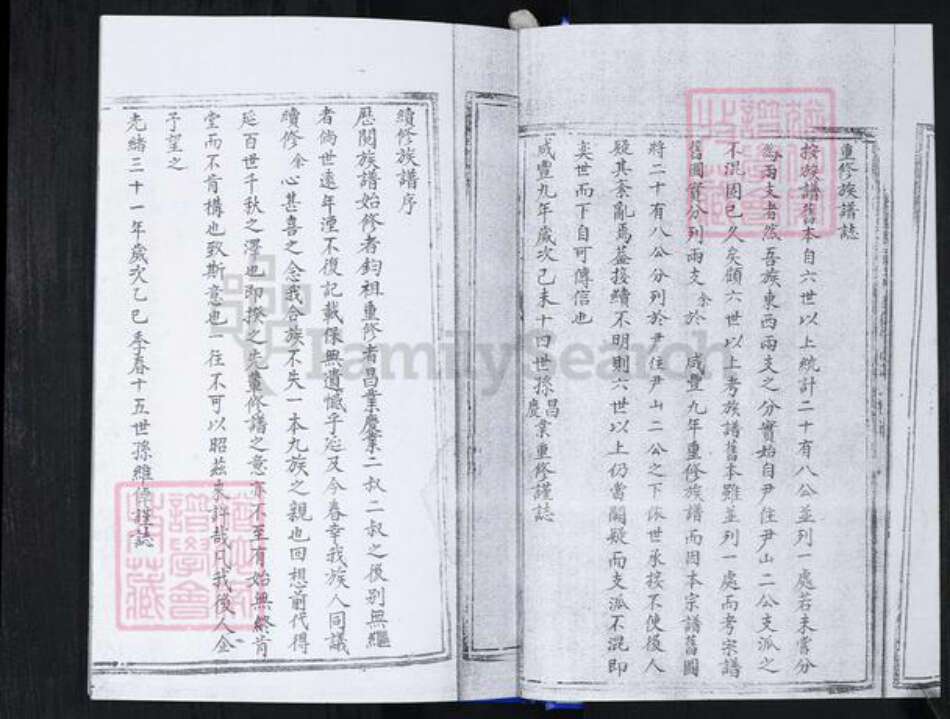 重修族譜誌
按族譜舊本自六世以上統計二十有八公並列一處若未嘗分
為兩支者然吾族東西兩支之分實始自尹住尹山二公支派之
不混固已久矣顧六世以上考族譜舊本雖並列一處而考宗譜
舊圖實分列兩支余於 咸豐九年重修族譜而因本宗譜舊圖
將二十有八公分列於尹住尹山二公之下依世承接不使後人
疑其紊亂焉蓋接續不明則六世以上仍當闕疑而支派不混即
奕世而下自可傳信也
咸豐九年歲次己未十四世孫昌慶業重修謹誌
續修族譜序
歷閱族譜始修者鈞祖重修者昌業慶業二叔二叔之後別無繼
者倘世遠年湮不復記載保無遺憾乎延及今春幸我族人同議
續修余心甚喜之念我合族不失一本九族之親也回想前代得
延百世千秋之澤也即揆之先輩修譜之意亦不至有始無終肯
堂而不肯構也致斯意也一往不可以昭茲來許哉凡我後人企
予望之
光緒三十一年歲次乙巳季春十五世孫維倬謹誌
FamilySearch
譜學會
藏